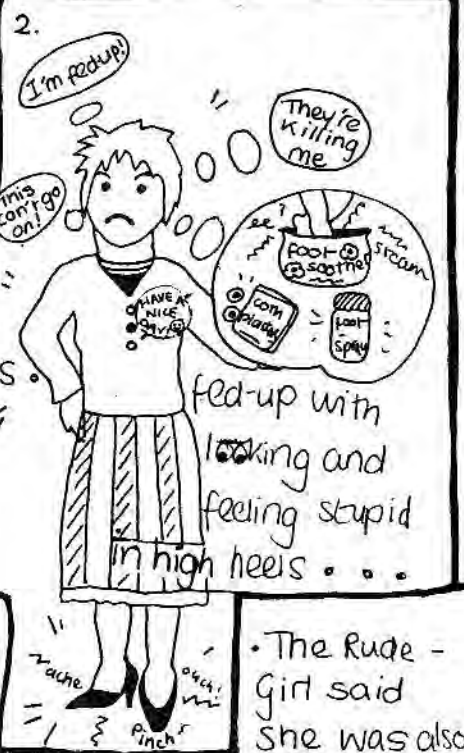 2.
I'm fed-up!
They're
killing
me
This
can't go
on!
foot
soother
steam
corn
plasters
foot
spray
HAVE A
NICE
DAY
s.
fed-up with
looking and
feeling stupid
in high heels . . .
ache
ouch!
pinch
• The Rude -
Girl said
she was also